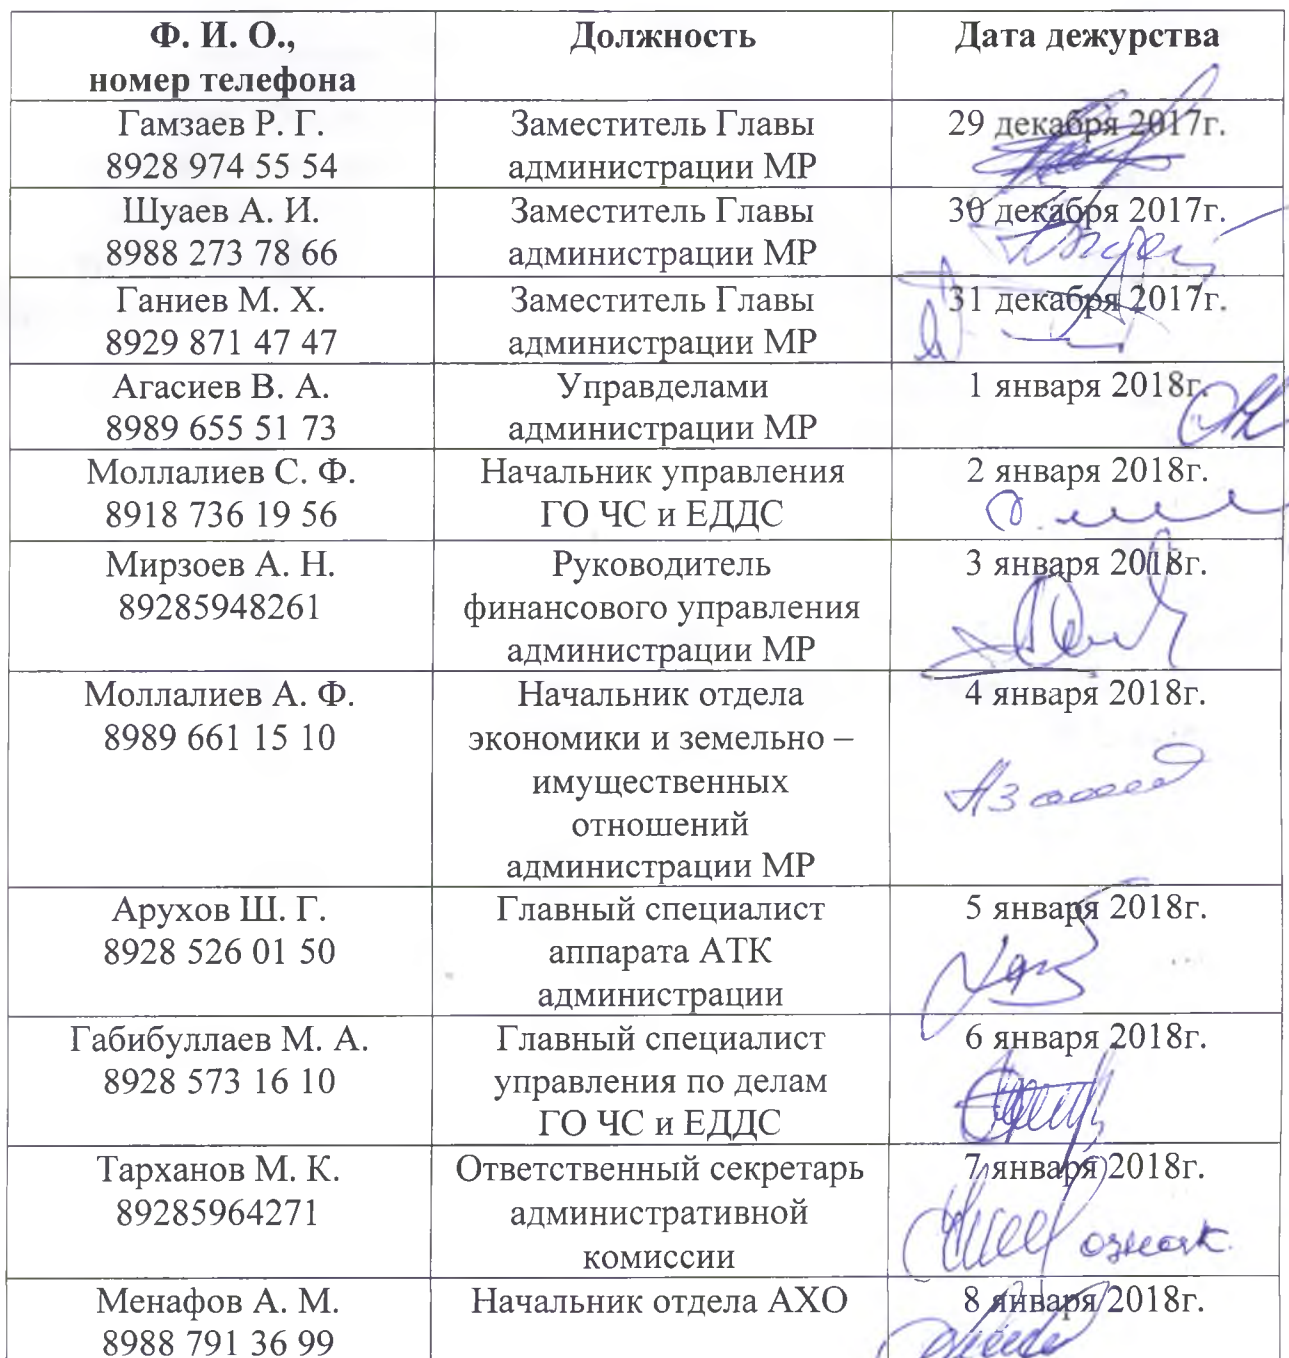 Ф. И. О.,
номер телефона
Должность
Дата дежурства
Гамзаев Р. Г.
8928 974 55 54
Заместитель Главы
администрации МР
29 декабря 2017г.
Шуаев А. И.
8988 273 78 66
Заместитель Главы
администрации МР
30 декабря 2017г.
Ганиев М. Х.
8929 871 47 47
Заместитель Главы
администрации МР
31 декабря 2017г.
Агасиев В. А.
8989 655 51 73
Управделами
администрации МР
1 января 2018г.
Моллалиев С. Ф.
8918 736 19 56
Начальник управления
ГО ЧС и ЕДДС
2 января 2018г.
Мирзоев А. Н.
89285948261
Руководитель
финансового управления
администрации МР
3 января 2018г.
Моллалиев А. Ф.
8989 661 15 10
Начальник отдела
экономики и земельно –
имущественных
отношений
администрации МР
4 января 2018г.
Арухов Ш. Г.
8928 526 01 50
Главный специалист
аппарата АТК
администрации
5 января 2018г.
Габибуллаев М. А.
8928 573 16 10
Главный специалист
управления по делам
ГО ЧС и ЕДДС
6 января 2018г.
Тарханов М. К.
89285964271
Ответственный секретарь
административной
комиссии
7 января 2018г.
ознак.
Менафов А. М.
8988 791 36 99
Начальник отдела АХО
8 января 2018г.